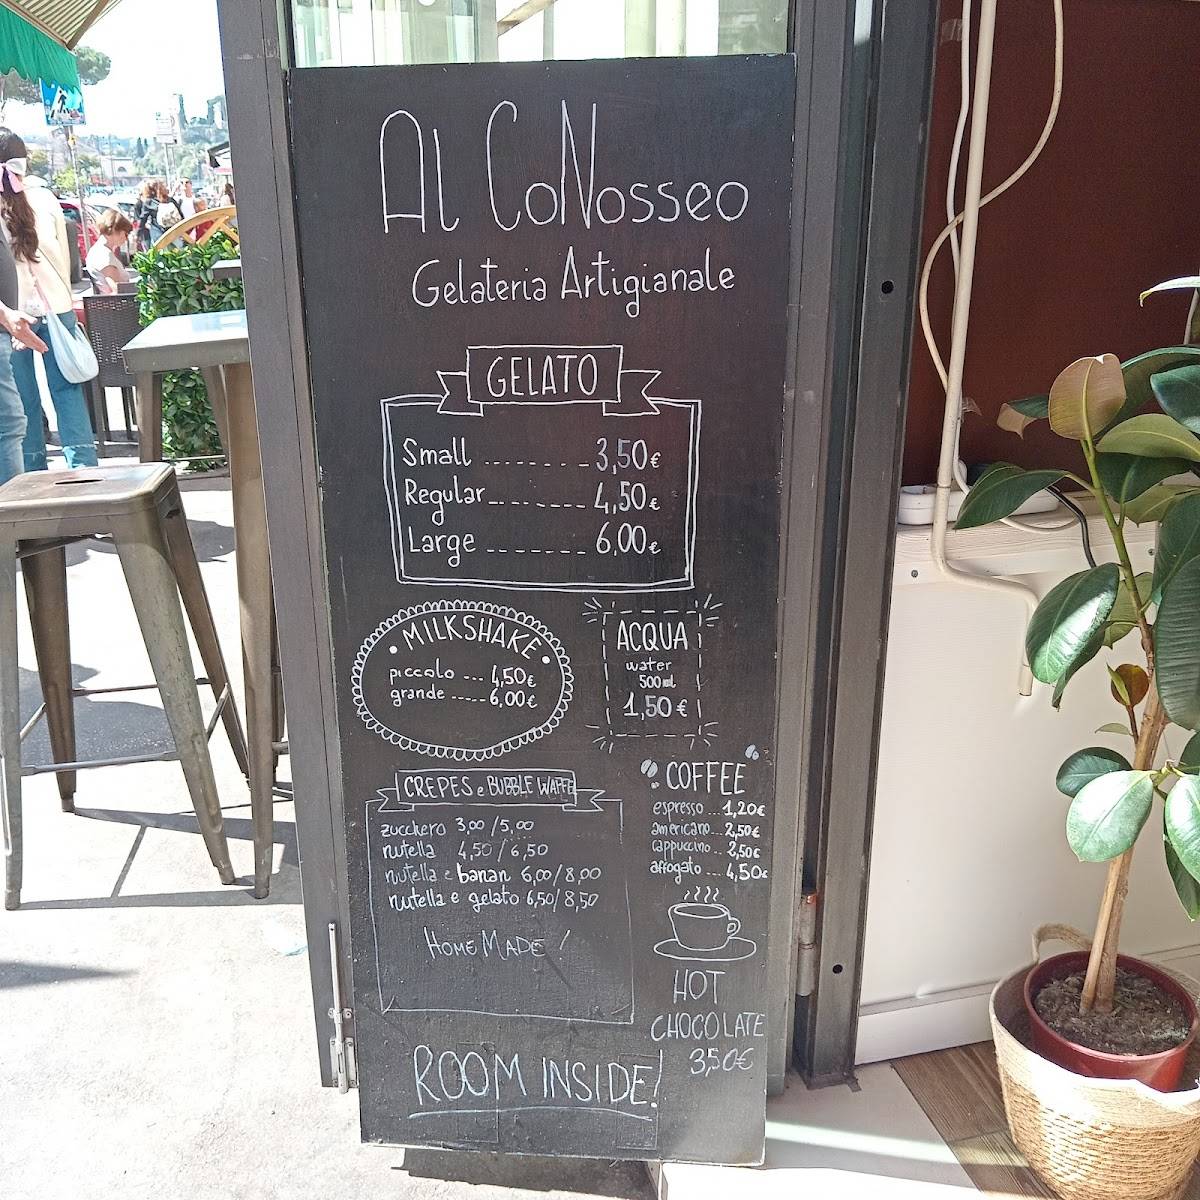 Al CoNosseo
Gelateria Artigianale
GELATO
Small -------- 3,50€
Regular -------- 4,50€
Large -------- 6,00€
• MILKSHAKE •
piccolo --- 4,50€
grande ----- 6,00€
ACQUA
water
500ml
1,50€
CREPES e BUBBLE WAFFE
zucchero 3,00/5,00
nutella 4,50/6,50
nutella e banan 6,00/8,00
nutella e gelato 6,50/8,50
HOME MADE !
COFFEE
espresso... 1,20€
americano... 2,50€
cappuccino... 2,50€
affogato... 4,50€
HOT
CHOCOLATE
3,50€
ROOM INSIDE!